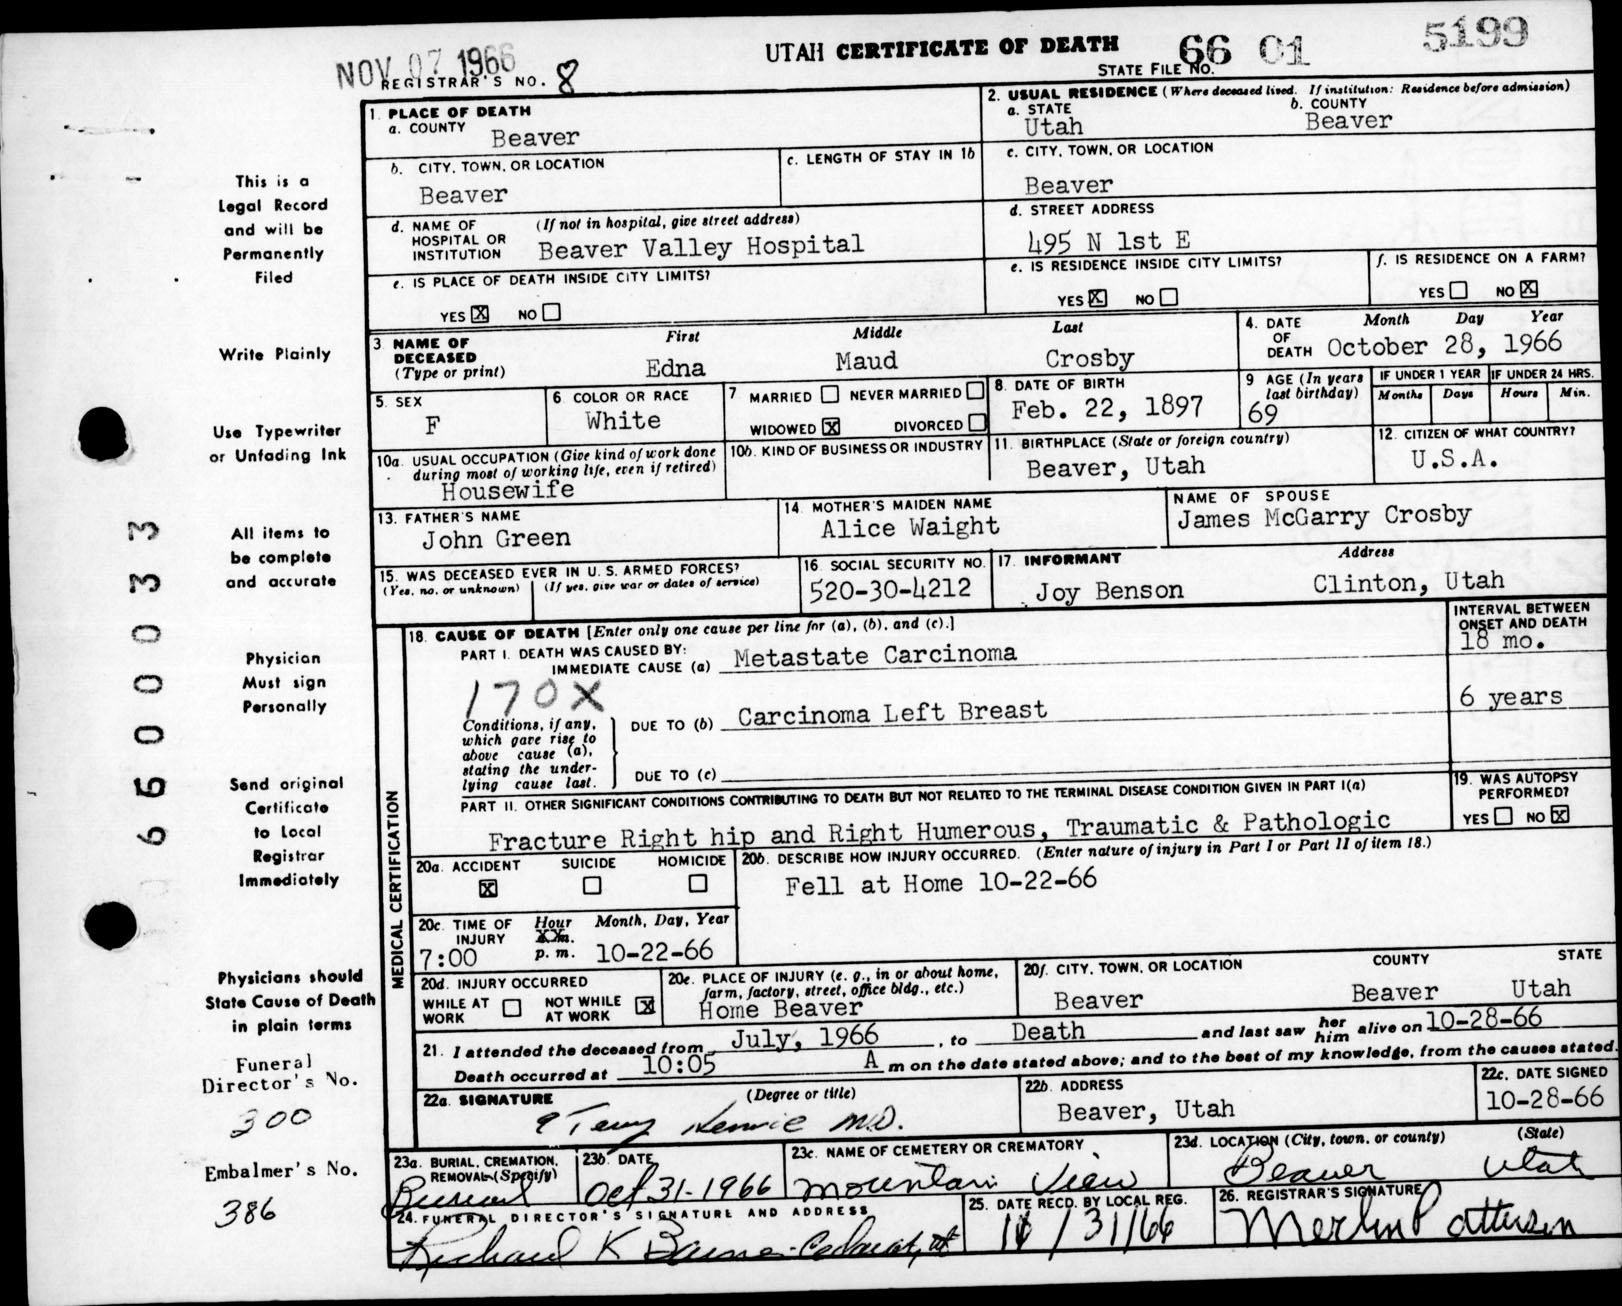 NOV 07 1966
UTAH CERTIFICATE OF DEATH 66 01 5199
STATE FILE NO.
REGISTRAR'S NO. 8
1. PLACE OF DEATH
a. COUNTY Beaver
2. USUAL RESIDENCE (Where deceased lived. If institution: Residence before admission)
a. STATE Utah b. COUNTY Beaver
b. CITY, TOWN, OR LOCATION Beaver
c. LENGTH OF STAY IN 1b
c. CITY, TOWN, OR LOCATION Beaver
d. NAME OF HOSPITAL OR INSTITUTION (If not in hospital, give street address) Beaver Valley Hospital
d. STREET ADDRESS 495 N 1st E
e. IS PLACE OF DEATH INSIDE CITY LIMITS?
YES X NO
e. IS RESIDENCE INSIDE CITY LIMITS?
YES X NO
f. IS RESIDENCE ON A FARM?
YES NO X
3. NAME OF DECEASED (Type or print)
First Middle Last
Edna Maud Crosby
4. DATE OF DEATH Month Day Year
October 28, 1966
5. SEX F
6. COLOR OR RACE White
7 MARRIED NEVER MARRIED
WIDOWED X DIVORCED
8. DATE OF BIRTH Feb. 22, 1897
9 AGE (In years last birthday) 69
IF UNDER 1 YEAR Months Days
IF UNDER 24 HRS. Hours Min.
10a. USUAL OCCUPATION (Give kind of work done during most of working life, even if retired)
Housewife
10b. KIND OF BUSINESS OR INDUSTRY
11. BIRTHPLACE (State or foreign country) Beaver, Utah
12. CITIZEN OF WHAT COUNTRY? U.S.A.
13. FATHER'S NAME John Green
14. MOTHER'S MAIDEN NAME Alice Waight
NAME OF SPOUSE James McGarry Crosby
15. WAS DECEASED EVER IN U.S. ARMED FORCES?
(Yes, no, or unknown) (If yes, give war or dates of service)
16. SOCIAL SECURITY NO. 520-30-4212
17. INFORMANT Address
Joy Benson Clinton, Utah
18. CAUSE OF DEATH [Enter only one cause per line for (a), (b), and (c).]
INTERVAL BETWEEN ONSET AND DEATH
PART I. DEATH WAS CAUSED BY:
IMMEDIATE CAUSE (a) Metastate Carcinoma 18 mo.
170X
Conditions, if any, which gave rise to above cause (a), stating the underlying cause last.
DUE TO (b) Carcinoma Left Breast 6 years
DUE TO (c)
PART II. OTHER SIGNIFICANT CONDITIONS CONTRIBUTING TO DEATH BUT NOT RELATED TO THE TERMINAL DISEASE CONDITION GIVEN IN PART I(a)
Fracture Right hip and Right Humerous, Traumatic & Pathologic
19. WAS AUTOPSY PERFORMED?
YES NO X
MEDICAL CERTIFICATION
20a. ACCIDENT SUICIDE HOMICIDE
X
20b. DESCRIBE HOW INJURY OCCURRED. (Enter nature of injury in Part I or Part II of item 18.)
Fell at Home 10-22-66
20c. TIME OF INJURY Hour Month, Day, Year
7:00 p. m. 10-22-66
20d. INJURY OCCURRED
WHILE AT WORK NOT WHILE AT WORK X
20e. PLACE OF INJURY (e. g., in or about home, farm, factory, street, office bldg., etc.)
Home Beaver
20f. CITY, TOWN, OR LOCATION COUNTY STATE
Beaver Beaver Utah
21. I attended the deceased from July, 1966, to Death and last saw her him alive on 10-28-66
Death occurred at 10:05 A m on the date stated above; and to the best of my knowledge, from the causes stated.
22a. SIGNATURE (Degree or title)
M.D.
22b. ADDRESS Beaver, Utah
22c. DATE SIGNED 10-28-66
23a. BURIAL, CREMATION, REMOVAL (Specify) Burial
23b. DATE Oct 31-1966
23c. NAME OF CEMETERY OR CREMATORY Mountain View
23d. LOCATION (City, town, or county) (State)
Beaver Utah
24. FUNERAL DIRECTOR'S SIGNATURE AND ADDRESS
Richard K
25. DATE RECD. BY LOCAL REG.
31/66
26. REGISTRAR'S SIGNATURE
Merlin Patterson
This is a
Legal Record
and will be
Permanently
Filed
Write Plainly
Use Typewriter
or Unfading Ink
All items to
be complete
and accurate
Physician
Must sign
Personally
Send original
Certificate
to Local
Registrar
Immediately
Physicians should
State Cause of Death
in plain terms
Funeral
Director's No.
300
Embalmer's No.
386
66000033